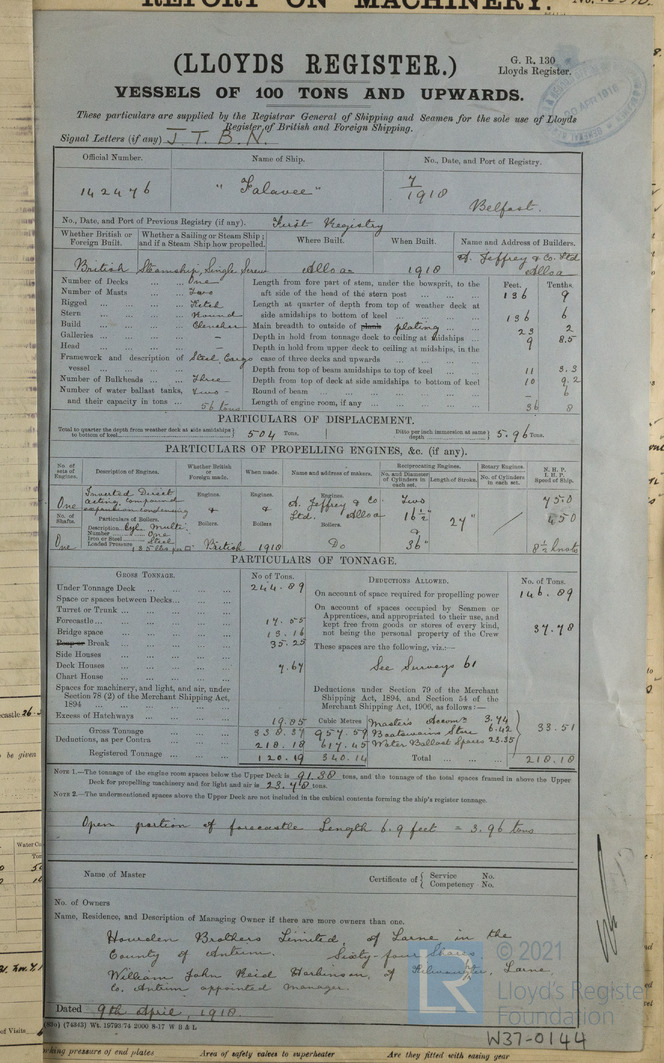 REPORT ON MACHINERY. No.
(LLOYDS REGISTER.)
G. R. 130
Lloyds Register.
VESSELS OF 100 TONS AND UPWARDS.
20 APR 1918
These particulars are supplied by the Registrar General of Shipping and Seamen for the sole use of Lloyds
Register of British and Foreign Shipping.
Signal Letters (if any) J T. B. N.
Official Number. Name of Ship. No., Date, and Port of Registry.
142476 "Falavee" 7/1918 Belfast.
No., Date, and Port of Previous Registry (if any). First Registry
Whether British or Foreign Built. Whether a Sailing or Steam Ship; and if a Steam Ship how propelled. Where Built. When Built. Name and Address of Builders.
British Steamship, Single Screw Alloa 1918 A. Jeffrey & Co. Ltd Alloa
Feet. Tenths.
Number of Decks One
Number of Masts Two
Rigged Ketch
Stern Round
Build Clencher
Galleries -
Head -
Framework and description of vessel Steel Cargo
Number of Bulkheads Three
Number of water ballast tanks, and their capacity in tons Two - 56 tons
Length from fore part of stem, under the bowsprit, to the aft side of the head of the stern post 136 9
Length at quarter of depth from top of weather deck at side amidships to bottom of keel 136 6
Main breadth to outside of plank plating 23 2
Depth in hold from tonnage deck to ceiling at midships 9 8.5
Depth in hold from upper deck to ceiling at midships, in the case of three decks and upwards
Depth from top of beam amidships to top of keel 11 3.3
Depth from top of deck at side amidships to bottom of keel 10 9.2
Round of beam - 6
Length of engine room, if any 36 8
PARTICULARS OF DISPLACEMENT.
Total to quarter the depth from weather deck at side amidships to bottom of keel 504 Tons. Ditto per inch immersion at same depth 5.96 Tons.
PARTICULARS OF PROPELLING ENGINES, &c. (if any).
No. of sets of Engines. Description of Engines. Whether British or Foreign made. When made. Name and address of makers. Reciprocating Engines. Rotary Engines. N. H. P. I. H. P. Speed of Ship.
No. and Diameter of Cylinders in each set. Length of Stroke. No. of Cylinders in each set.
One Inverted Direct acting compound expansion condensing Engines. & Engines. & Engines. A. Jeffrey & Co. Ltd. Alloa Two 16½" & 36" 27" / 75.0 450
No. of Shafts. One
Particulars of Boilers.
Description Cyl. Multi.
Number One
Iron or Steel Steel
Loaded Pressure
Boilers British Boilers 1918 Boilers. Do 8½ knots
PARTICULARS OF TONNAGE.
GROSS TONNAGE. No of Tons.
Under Tonnage Deck 244.89
Space or spaces between Decks
Turret or Trunk
Forecastle 17.55
Bridge space 13.16
Poop or Break 35.25
Side Houses
Deck Houses 7.67
Chart House
Spaces for machinery, and light, and air, under Section 78 (2) of the Merchant Shipping Act, 1894
Excess of Hatchways 19.85
Cubic Metres
Gross Tonnage 338.37 957.59
Deductions, as per Contra 218.18 617.45
Registered Tonnage 120.19 340.14
DEDUCTIONS ALLOWED. No. of Tons.
On account of space required for propelling power 146.89
On account of spaces occupied by Seamen or Apprentices, and appropriated to their use, and kept free from goods or stores of every kind, not being the personal property of the Crew 37.78
These spaces are the following, viz.:—
See Surveys 61
Deductions under Section 79 of the Merchant Shipping Act, 1894, and Section 54 of the Merchant Shipping Act, 1906, as follows:—
Master's Accom. 3.74
Boatswains Store 6.42
Water Ballast Spaces 23.35
33.51
Total 218.18
NOTE 1.—The tonnage of the engine room spaces below the Upper Deck is 91.38 tons, and the tonnage of the total spaces framed in above the Upper
Deck for propelling machinery and for light and air is 23.78 tons.
NOTE 2.—The undermentioned spaces above the Upper Deck are not included in the cubical contents forming the ship's register tonnage.
Open portion of forecastle Length 6.9 feet = 3.96 tons
Name of Master Certificate of { Service No. Competency No.
No. of Owners
Name, Residence, and Description of Managing Owner if there are more owners than one.
Howden Brothers Limited, of Larne in the
County of Antrim. Sixty-four Shares.
William John Reid Harbinson, of Larne
Co. Antrim appointed manager.
Dated 9th April, 1918.
(74343) Wt. 19793/74 2000 8-17 W B & L
© 2021
LR
Lloyd's Register
Foundation
W37-0144
king pressure of end plates Area of safety valves to superheater Are they fitted with easing gear
be given
of Visits